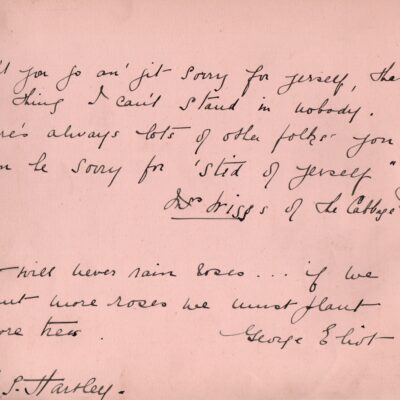 t you go an' git sorry for yerself, the
thing I can't stand in nobody.
re's always lots of other folks you
n be sorry for 'stid of yerself"
Mrs Wiggs of the Cabbage
will never rain roses... if we
nt more roses we must plant
ore trees. George Eliot
S. Hartley.